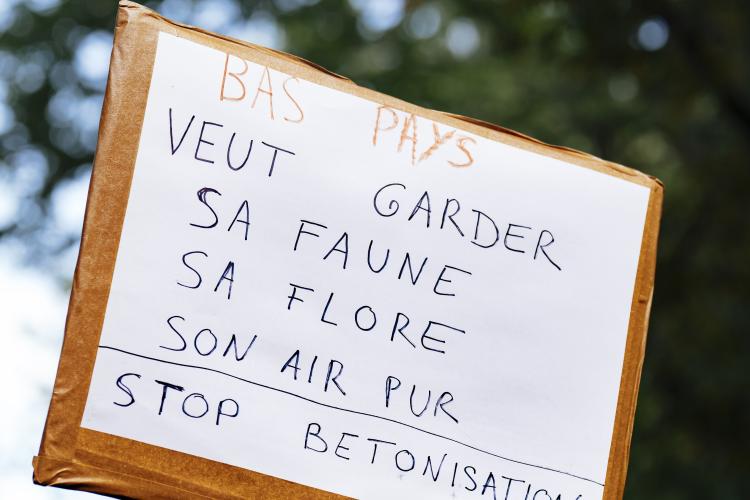 BAS PAYS
VEUT GARDER
SA FAUNE
SA FLORE
SON AIR PUR
STOP BETONISATION